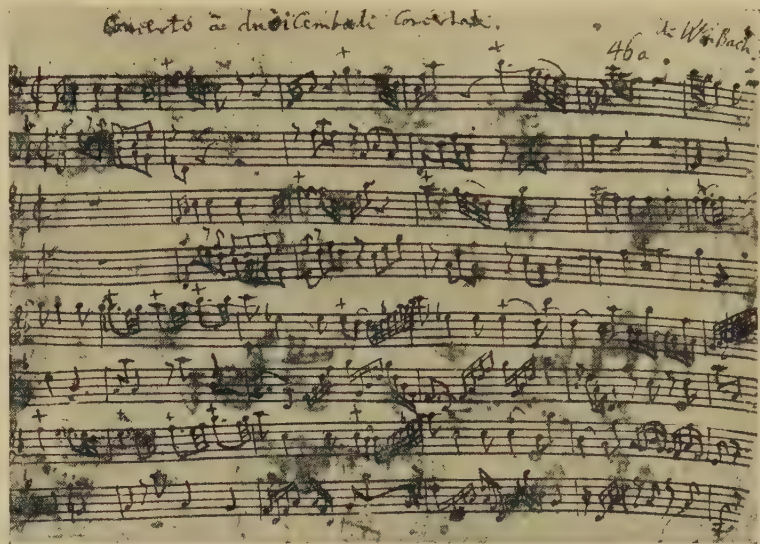 Concerto a dui Cembali Concertati.
di W. F. Bach
46a